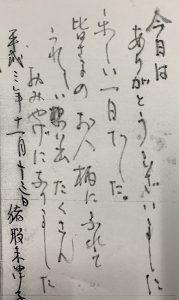 今日は
ありがとうございました
楽しい一日でした。
皆さまのお人柄にふれて
うれしい思い出たくさん
おみやげになりました
平成三年十一月十三日